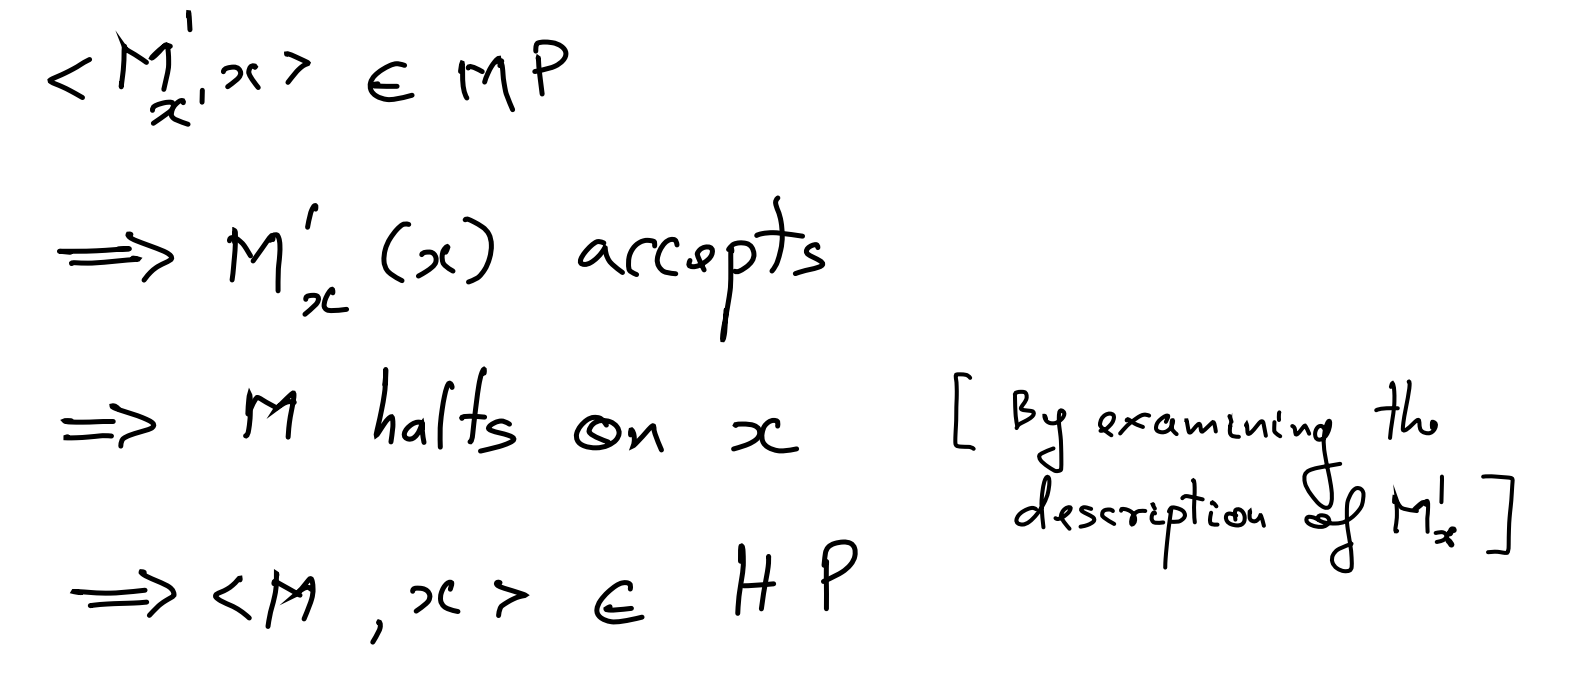 < M'ₓ, x > ∈ MP
⟹ M'ₓ (x) accepts
⟹ M halts on x [ By examining the
description of M'ₓ ]
⟹ < M , x > ∈ HP